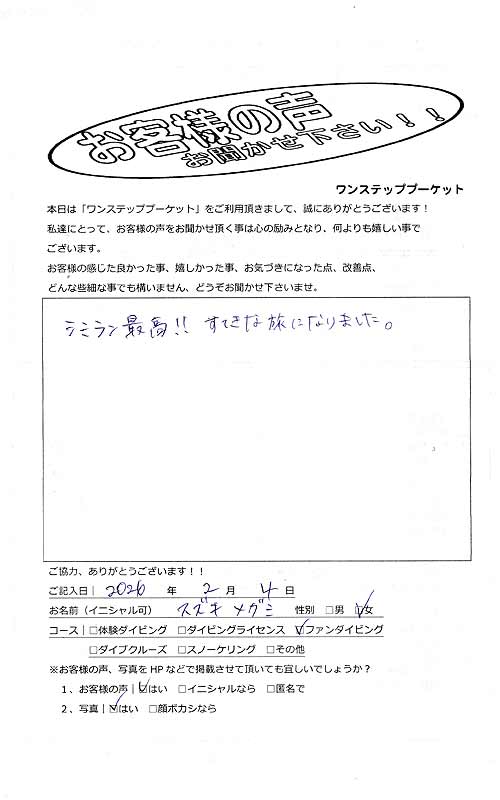 お客様の声
お聞かせ下さい！！
ワンステッププーケット
本日は「ワンステッププーケット」をご利用頂きまして、誠にありがとうございます！
私達にとって、お客様の声をお聞かせ頂く事は心の励みとなり、何よりも嬉しい事で
ございます。
お客様の感じた良かった事、嬉しかった事、お気づきになった点、改善点、
どんな些細な事でも構いません、どうぞお聞かせ下さいませ。
シミラン最高!! すてきな旅になりました。
ご協力、ありがとうございます！！
ご記入日｜ 2026 年 2 月 4 日
お名前（イニシャル可） スズキ メグミ 性別 □男 ☑女
コース｜□体験ダイビング □ダイビングライセンス ☑ファンダイビング
□ダイブクルーズ □スノーケリング □その他
※お客様の声、写真をHPなどで掲載させて頂いても宜しいでしょうか？
１、お客様の声｜☑はい □イニシャルなら □匿名で
２、写真｜☑はい □顔ボカシなら